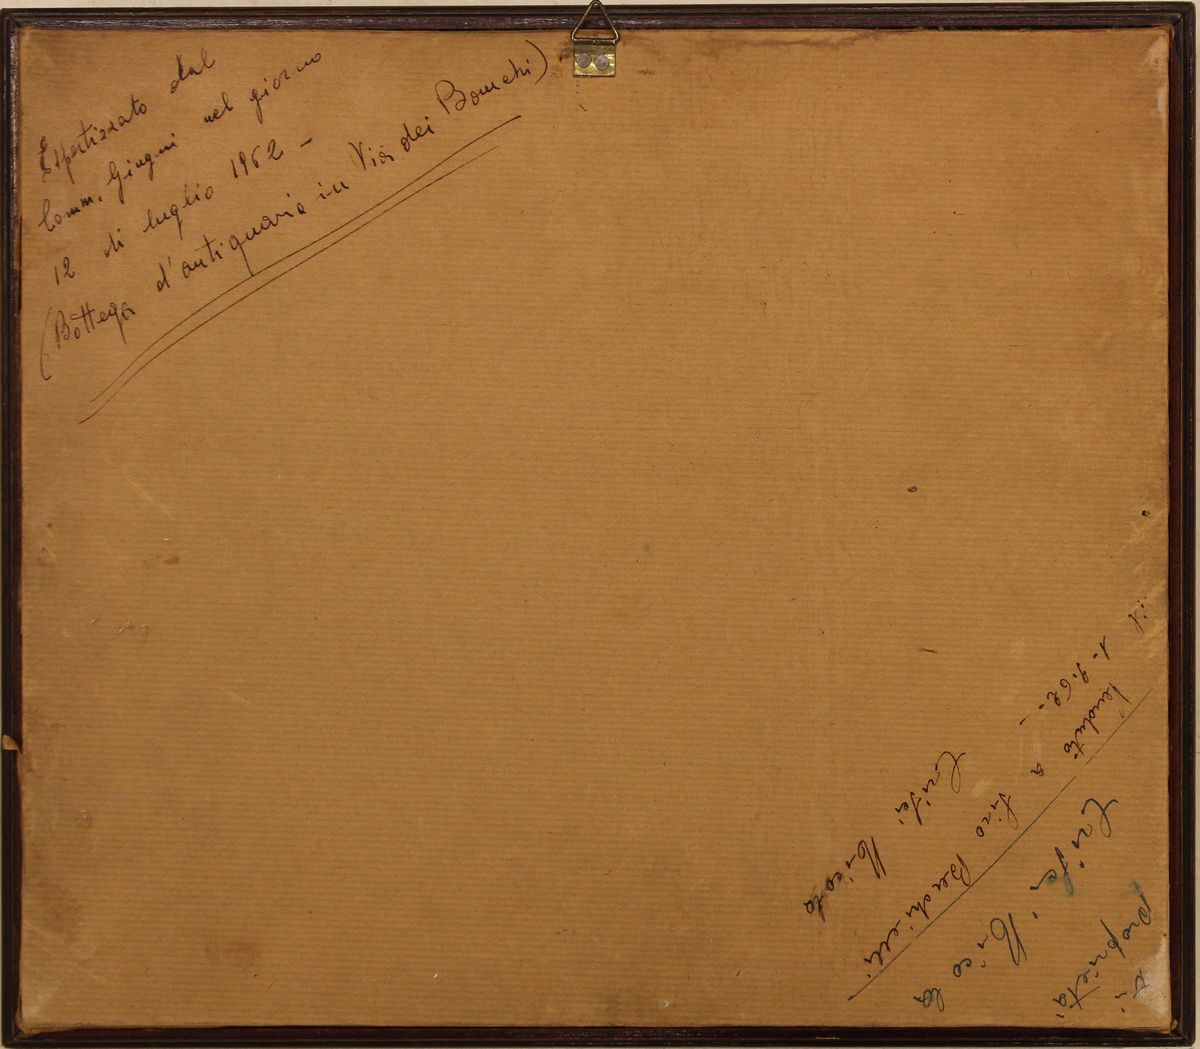 Espertizzato dal
Comm. Giugni nel giorno
12 di luglio 1962 -
(Bottega d'antiquario in Via dei Banchi)
di proprietà
Crisfei Nicola
Venduto a Lino Bechicchi
il 1-9.62.-
Crisfei Nicola